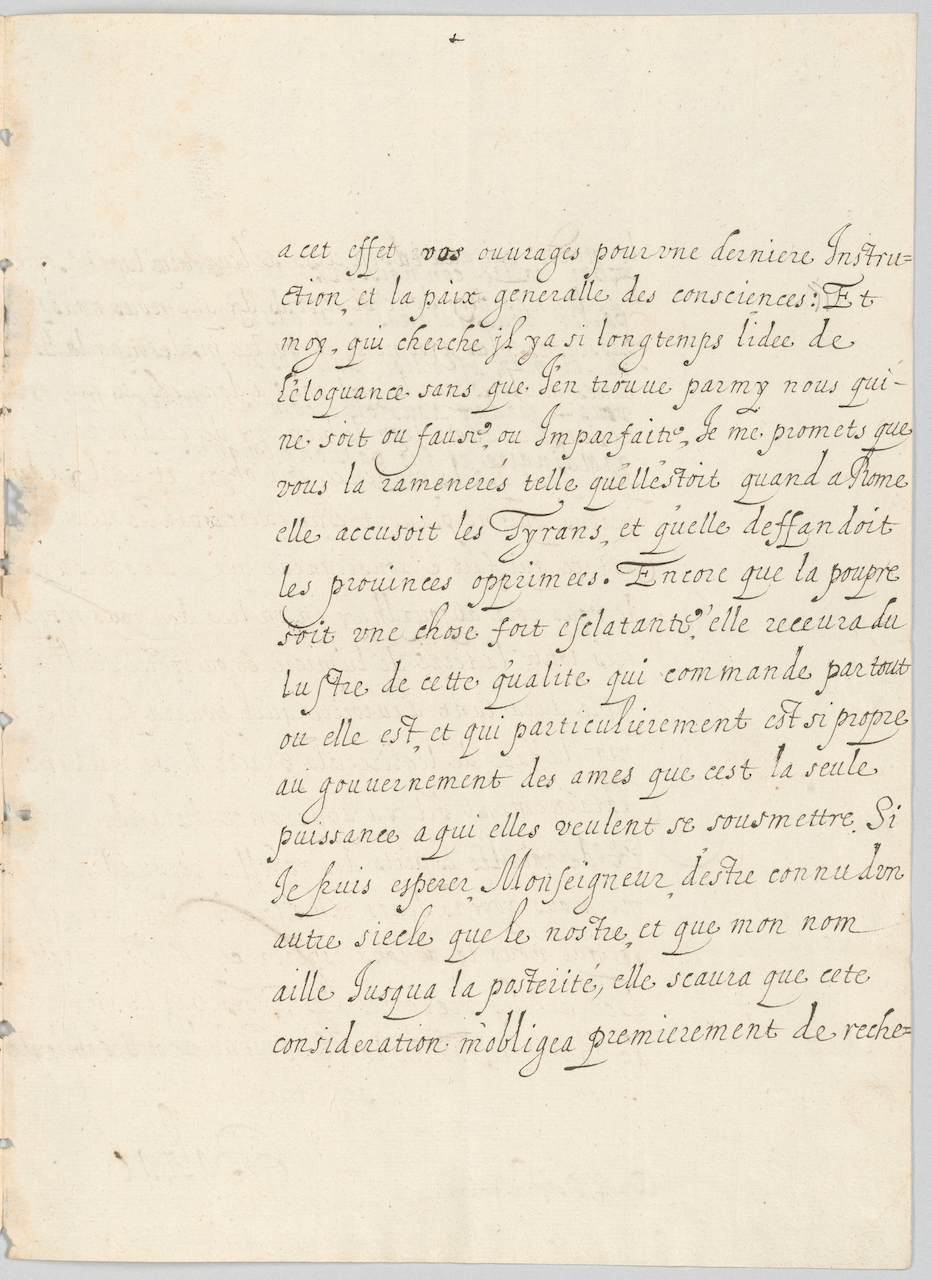 a cet effet vos ouvrages pour vne derniere Instru=
ction, et la paix generalle des consciences: Et
moy, qui cherche jl ya si longtemps lidee de
l'eloquance sans que J'en trouue parmy nous qui-
ne soit ou fause, ou Imparfaite, Je me promets que
vous la ramenerés telle qu'ell'estoit quand a Rome
elle accusoit les Tyrans, et qu'elle deffandoit
les prouinces opprimees. Encore que la poupre
soit vne chose fort esclatante, elle receura du
lustre de cette qualite qui commande partout
ou elle est, et qui particulierement est si propre
au gouuernement des ames que cest la seule
puissance a qui elles veulent se sousmettre. Si
Je puis esperer, Monseigneur, destre connu dvn
autre siecle que le nostre, et que mon nom
aille Jusqua la posterité, elle scaura que cete
consideration m'obligea premierement de reche=